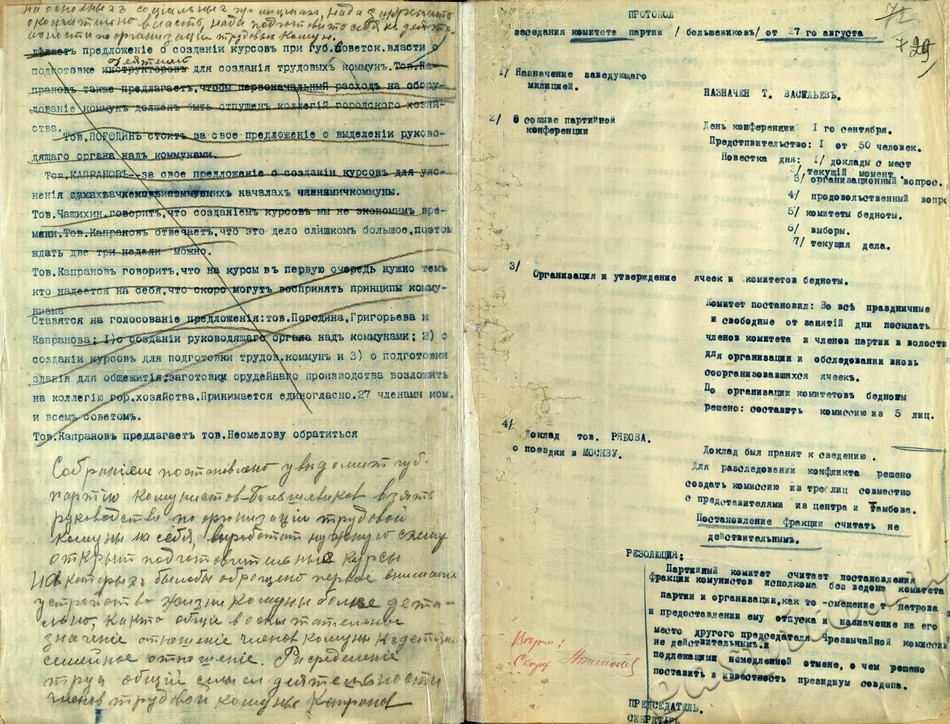 на основных социальных принципах, надо закрепить
окончательно власть, надо подготовить себя к деяте
льности по организации трудовых коммун.
делает предложение о создании курсов при губ.советск.власти о
деятелей
подготовке инструкторов для создания трудовых коммун.Тов.Ка-
пранов также предлагает,чтобы первоначальный расход на обору-
дование коммун должен быть отпущен коллегией городского хозяй-
ства.
Тов.ПОГОДИНЪ стоит за свое предложение о выделении руково-
дящего органа надъ коммунами.
Тов.КАПРАНОВЪ--за свое предложение о создании курсов для уяс-
нения началах
Тов.Чашихин.говорит,что созданіем курсов мы не экономим вре-
мени.Тов.Капранов отвечает,что это дело слишком большое,поэтом
ждать две три недели можно.
Тов.Капранов говорит,что на курсы в первую очередь нужно темъ
кто надеется на себя,что скоро могут воспринять принципы комму-
низма
Ставятся на голосование предложения:тов.Погодина,Григорьева и
Капранова: 1)о создании руководящаго органа над коммунами; 2) о
создании курсов для подготовки трудов.коммун и 3) о подготовки
здания для общежития;заготовки орудейнаго производства возложить
на коллегію гор.хозяйства.Принимается единогласно.27 членами ком.
и всемъ советом.
Тов.Капранов предлагает тов.Несмелову обратиться
Собранием постановлено уведомит губ.
партию комунистов-большевиков взять
руководство по организаціи трудовой
комуны на себя, выработат нужную схему
открыт подготовительные курсы
На которых былобы оброщено первое внимание
устройство жизни комуны более дета-
льно, как то общее воспитательное
значение отношение членов комуны к детям
семейное отношение. Распределение
труд общий смысл деятельности
членов трудовой комуны Капранов
72
729
ПРОТОКОЛ
заседания комитете партии / большевиков/ от 27 го августа
1/ Назначение заведующаго
милицией.
НАЗНАЧЕН Т. ВАСИЛЬЕВЪ.
2/ О созыве партийной
конференции
День конференции 1 го сентября.
Предствительство: 1 от 50 человек.
Повестка дня: 1/ доклады с мест
2/ текущий момент.
3/ организационный вопрос.
4/ продовольственный вопро
5/ комитеты бедноты.
6/ выборы.
7/ текущия дела.
3/ Организация и утверждение ячеек и комитетов бедноты.
Комитет постановил: Во всѣ праздничные
и свободные от занятій дни посылать
членов комитета и членов партии в волости
для организации и обследовании вновь
соорганизовавшихся ячеекъ.
По организации комитетов бедноты
решено: составить комиссию из 5 лиц.
4/ Доклад тов. РЯБОВА.
о поездки в МОСКВУ.
Доклад был принят к сведению .
Для разследовании конфликта решено
создать комиссию из трех лиц совместно
с представителями из центра и Тамбова.
Постановление фракции считать не
действительнымъ.
РЕЗОЛЮЦИЯ:
Партийный комитет считает постановления
фракции комунистов исполкома без ведома комитета
партии и организации,как то смещение с Петрова
и предоставлении ему отпуска и назначение на его
место другого председателя Чрезвычайной комиссии
не действительнымъ и
подлежащими немедленной отмене, о чем решено
поставить в известность президиум совдепа.
Верно:
Секр.
ПРЕДСЕДАТЕЛЬ.
СЕКРЕТАРЬ